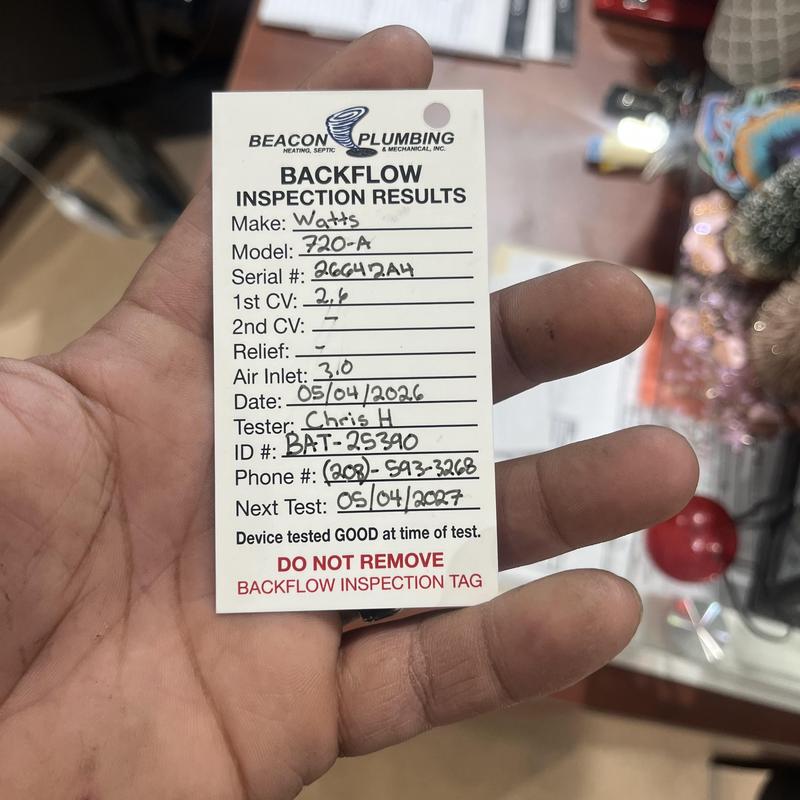 BEACON PLUMBING
HEATING, SEPTIC & MECHANICAL, INC.
BACKFLOW
INSPECTION RESULTS
Make: Watts
Model: 720-A
Serial #: 266472A4
1st CV: 2.6
2nd CV: -
Relief: -
Air Inlet: 3.0
Date: 05/04/2026
Tester: Chris H
ID #: BAT-25390
Phone #: (208)-593-3268
Next Test: 05/04/2027
Device tested GOOD at time of test.
DO NOT REMOVE
BACKFLOW INSPECTION TAG